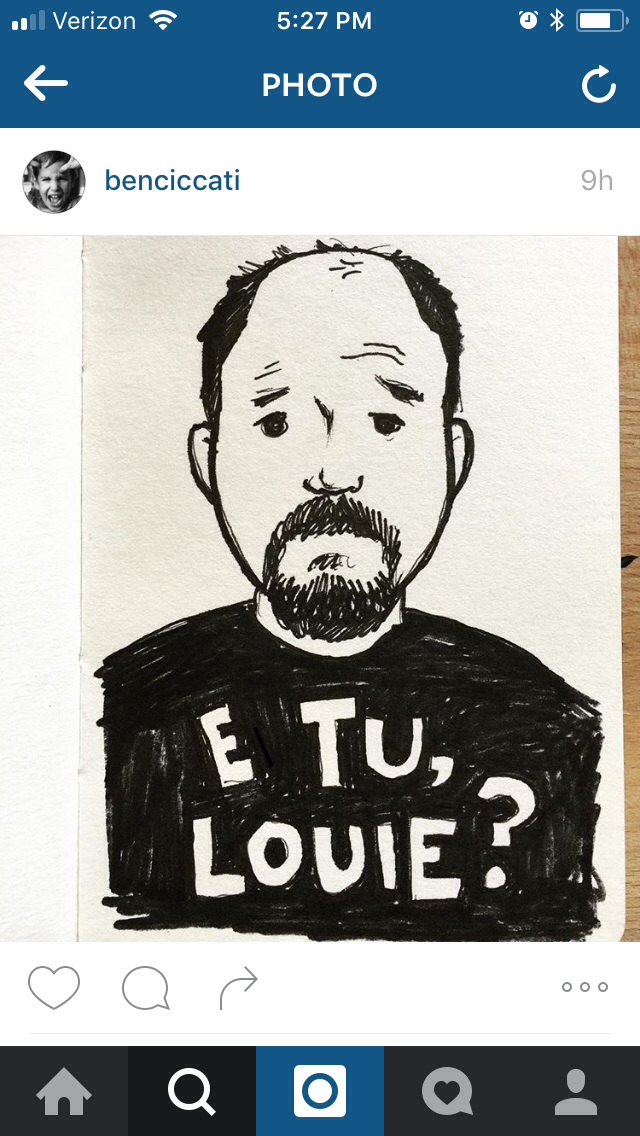 Verizon 5:27 PM
PHOTO
benciccati 9h
E TU,
LOUIE?